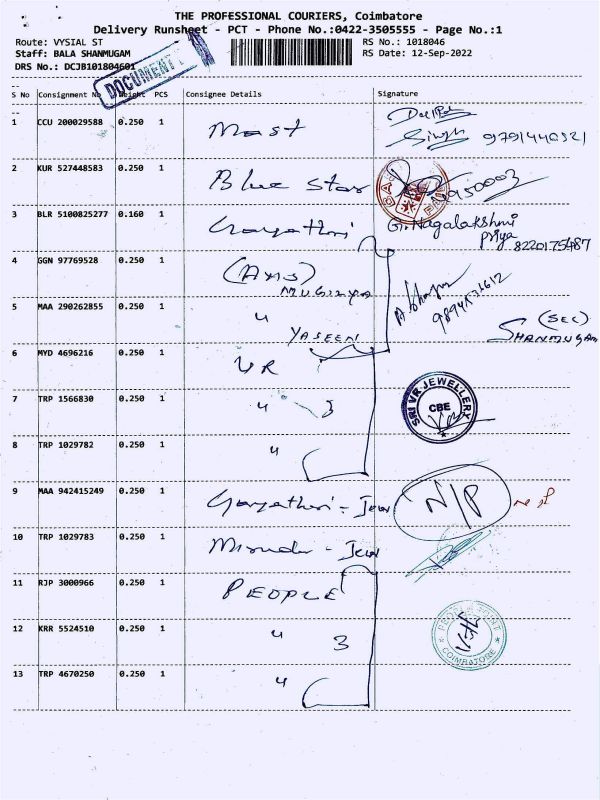 THE PROFESSIONAL COURIERS, Coimbatore
Delivery Runsheet - PCT - Phone No.:0422-3505555 - Page No.:1
Route: VYSIAL ST
RS No.: 1018046
Staff: BALA SHANMUGAM
RS Date: 12-Sep-2022
DRS No.: DCJB101804601
DOCUMENT
S No Consignment No Weight PCS Consignee Details Signature
1 CCU 200029588 0.250 1 Mast
Singh 9791440521
2 KUR 527448583 0.250 1 Blue Star
3 BLR 5100825277 0.160 1 Gayathri G. Nagalakshmi
Priya
8220175487
4 GGN 97769528 0.250 1 (AMS)
MUBINYA
9894531612
5 MAA 290262855 0.250 1 "
YASEEN
(SEC)
SHANMUGAM
6 MYD 4696216 0.250 1 VR
7 TRP 1566830 0.250 1 " 3
SRI VR JEWELLERY
CBE
8 TRP 1029782 0.250 1 "
9 MAA 942415249 0.250 1 Gayathri - Jew N/P
10 TRP 1029783 0.250 1 - Jew
11 RJP 3000966 0.250 1 PEOPLE
12 KRR 5524510 0.250 1 " 3
PEOPLE POINT
COIMBATORE
13 TRP 4670250 0.250 1 "